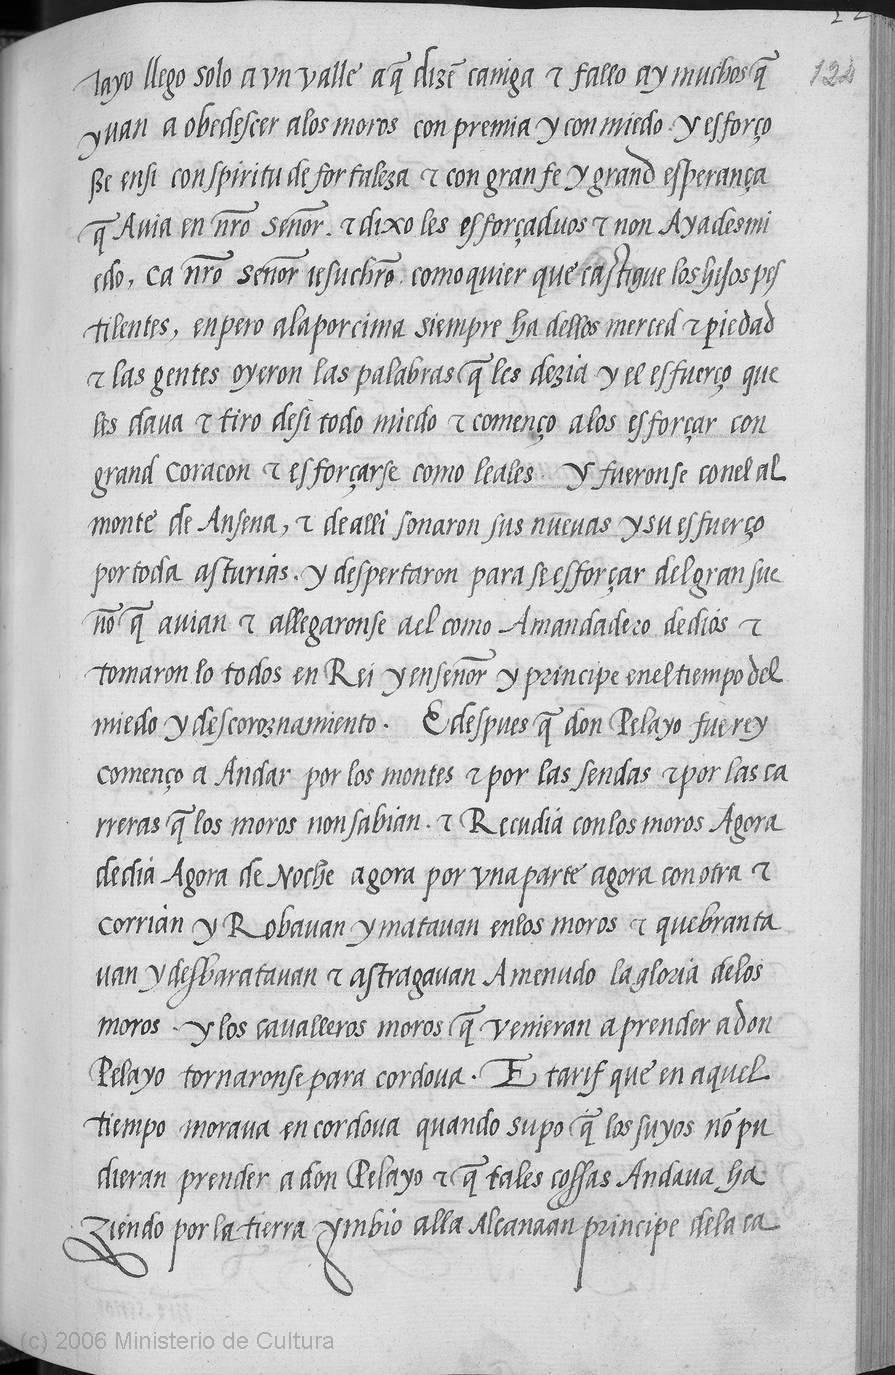 22
124
layo llego solo a vn valle a q̃ dizẽ caniga τ fallo ay muchos q̃
yuan a obedesçer alos moros con premia y con miedo. y esforço
sse ensi con spiritu de fortaleza τ con gran fe y grand esperança
q̃ Auia en nr̃o señor. τ dixo les esforçaduos τ non Ayades mi
edo, ca nr̃o señor iesuchrõ. como quier que castigue los hijos pes
tilentes, enpero ala por cima siempre ha dellos merced τ piedad
τ las gentes oyeron las palabras q̃ les dezia y el esfuerço que
les daua τ tiro desi todo miedo τ começo alos esforçar con
grand coracon τ esforçarse como leales. Y fueronse con el al
monte de Ansena, τ de alli sonaron sus nueuas y su esfuerço
por toda asturias. y despertaron para se esforçar del gran sue
ño q̃ auian τ allegaronse a el como Amandadero de dios τ
tomaron lo todos en Rei y en señor y principe en el tiempo del
miedo y descoroznamiento. E despues q̃ don Pelayo fue rey
començo a Andar por los montes τ por las sendas τ por las ca
rreras q̃ los moros non sabian. τ Recudia con los moros Agora
de dia Agora de Noche agora por vna parte agora con otra τ
corrian y Robauan y matauan enlos moros τ quebranta
uan y desbaratauan τ astragauan Amenudo la gloria delos
moros. y los caualleros moros q̃ venieran a prender a don
Pelayo tornaronse para cordoua. E tarif que en aquel
tiempo moraua en cordoua quando supo q̃ los suyos nõ pu
dieran prender a don Pelayo τ q̃ tales cossas Andaua ha
ziendo por la tierra ymbio alla Alcanaan principe dela ca
(c) 2006 Ministerio de Cultura